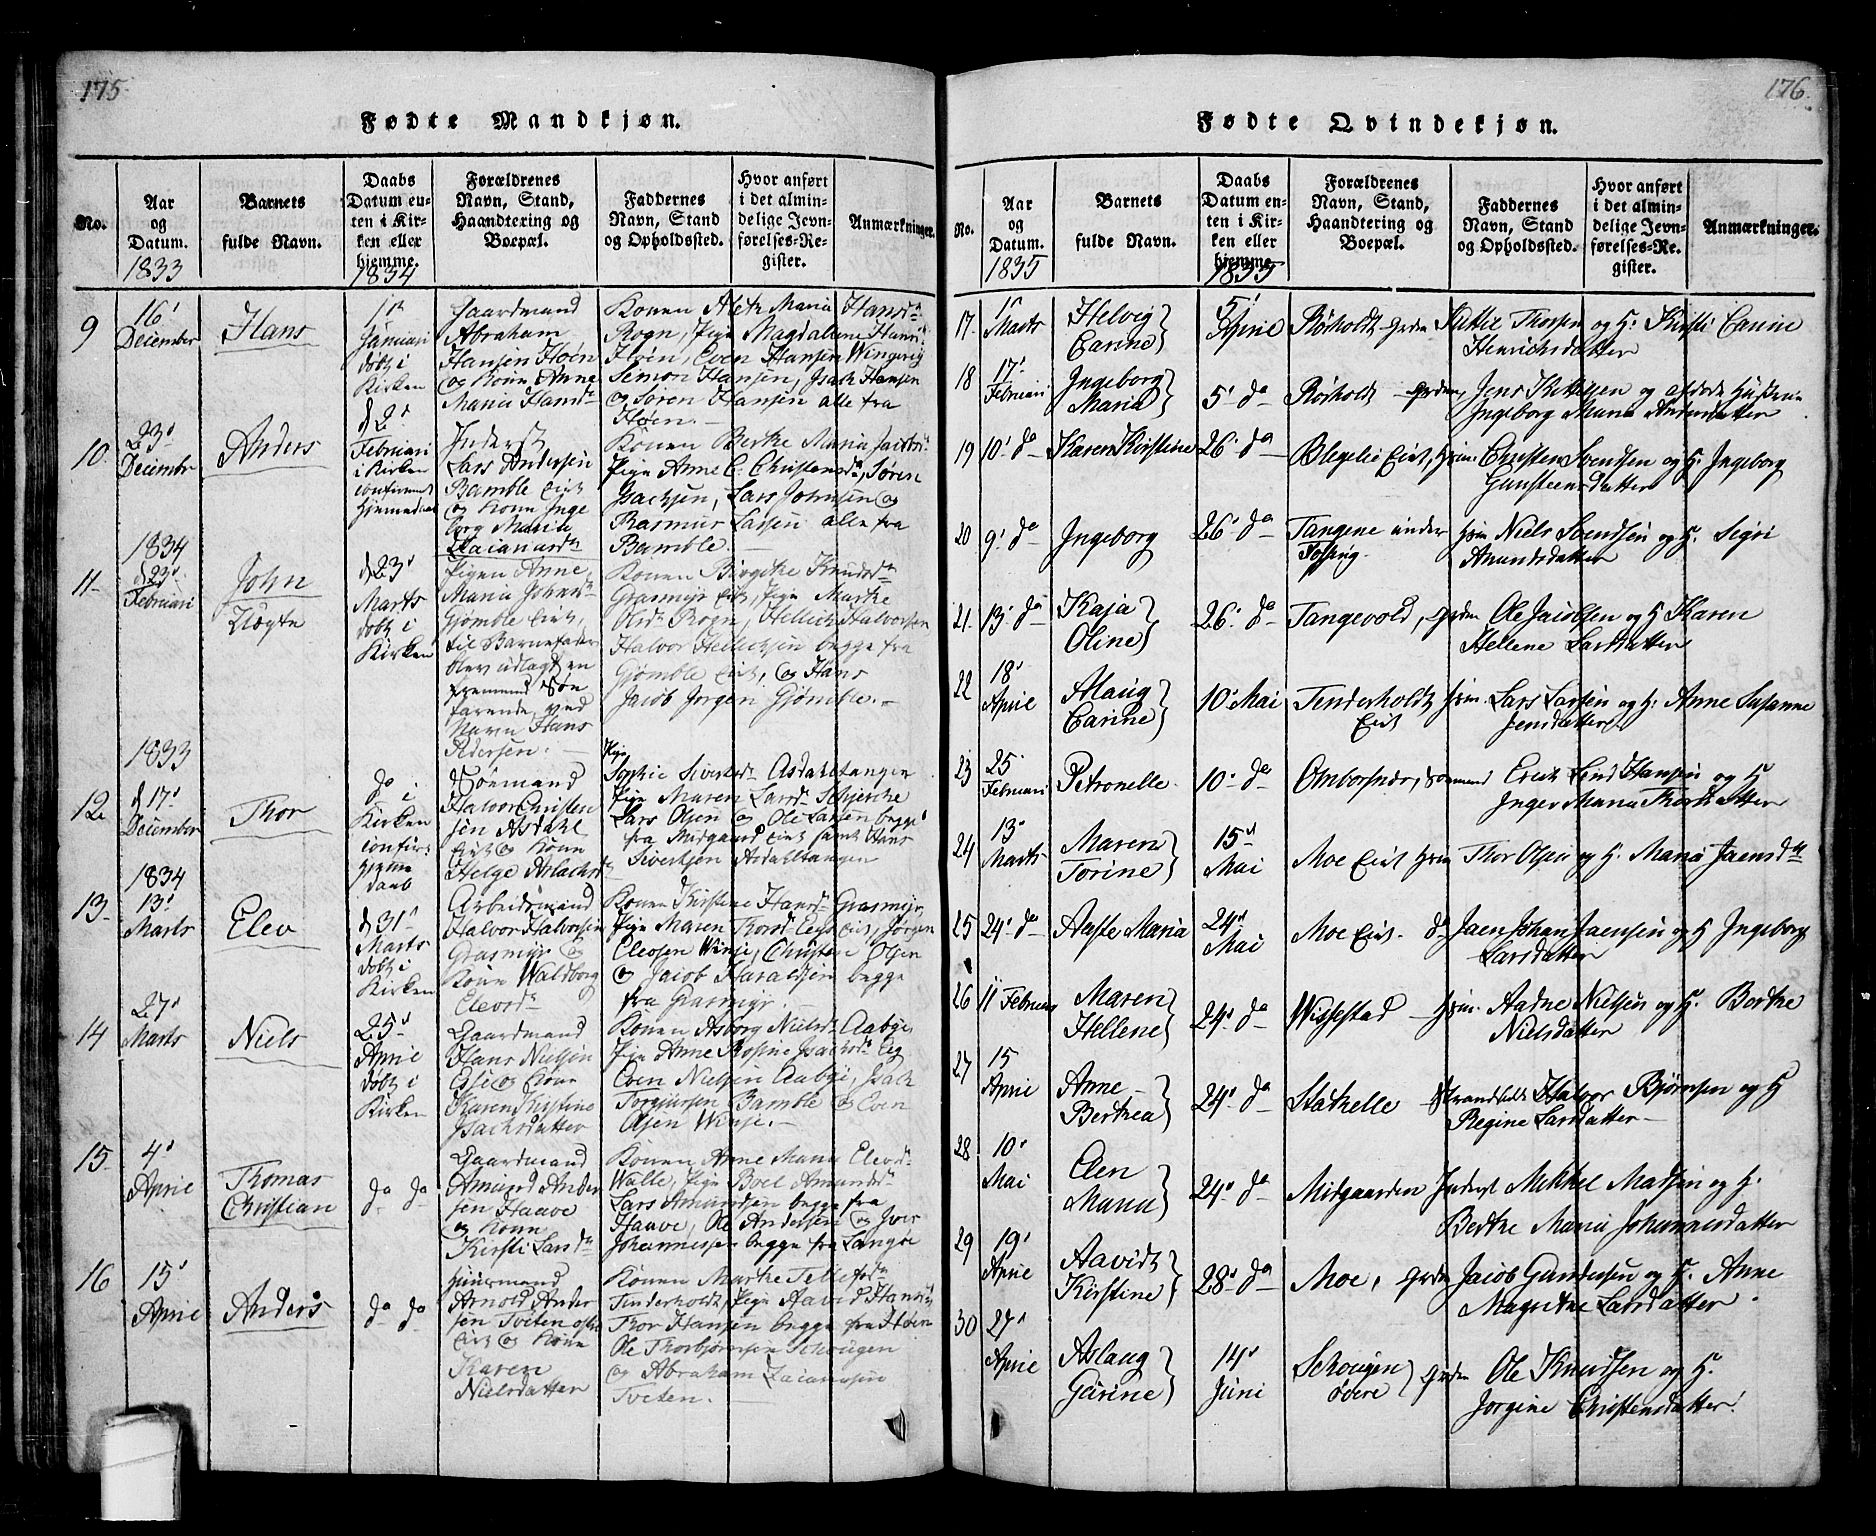 175
Fødte Mandkjøn.
No.
Aar
og
Datum.
1833
Barnets
fulde Navn.
Daabs
Datum en-
ten i Kir-
ken eller
hjemme.
1834
Forældrenes
Navn, Stand,
Haandtering og
Boepæl.
Faddernes
Navn, Stand
og Opholdssted.
Hvor anført
i det almin-
delige Jevn-
førelses-Re-
gister.
Anmærkninger.
9
16'
December
Hans
Januari
døbt i
Kirken
Gaardmand
Abraham
Hansen Høen
og Kone Anne
Maria Hansd
Konen Maria Hansd
Rogn, Pige Magdalene Hans
Høen, Even Hansen
Simon Hansen, Isach Hansen
og Søren Hansen alle fra
Høen.
10.
23'
Decembr
Anders
d 2'
Februari
i Kirken
Inderst
Lars Andersen
Bamble Eiet
og Kone Inge
borg Maria
Konen Berthe Maria
Pige Anne C. Christensd, Søren
Isachsen, Lars Johnsen og
Rasmus Larsen alle fra
Bamble.
1834
11.
d 23'
Februari
John
Uægte
d 23'
Marts
døbt i
Kirken
Pigen Anne
Maria Johnsd
Gjømble Eiet,
til Barnefader
blev udlagt en
fremmed Søe
farende ved
Navn Hans
Pedersen.
Konen Birgithe Knudsd
Grasmyr Eiet, Pige Marthe
Olsd Rogn, Hellich Halvorsen
Halvor Hellichsen begge fra
Gjømble Eiet, og Hans
Jacob Jørgen Gjømble.
1833
12
d 17'
December
Thor
do i
Kirken
hjemme
daab
Sømand
Halvor Christen
sen Asdahl
Eiet og Kone
Helge Aslachsd
Pige
Sophie Sivertsd Asdahltangen
Pige Maren Larsd
Lars Olsen og Ole Larsen begge
fra Midgaard Eiet samt Hans
Sivertsen Asdahltangen
1834
13.
13'
Marts
Elev
d 31'
Marts
døbt i
Kirken
Arbeidsmand
Halvor Halvorsen
Grasmyr og
Kone Waldborg
Elevsd
Konen Kirstine Hansd Grasmyr
Pige Maren Thorsd Eiet, Jørgen
Elevsen Winje, Christen Olsen
og Jacob Haraldsen begge
fra Grasmyr.
14
27'
Marts
Niels
25'
Aprie
døbt i
Kirken
Gaardmand
Hans Nielsen
og Kone
Karen Kirstine
Isachsdatter
Konen Asborg Nielsd Aabye
Pige Anne Rosine Isachsd Eig
Even Nielsen Aabye, Isach
Torgjursen Bamble og Even
Olsen Winje.
15.
4'
Aprie
Thomas
Christian
do do
Gaardmand
Amund Ander
sen Haave
og Kone
Kirsti Larsd
Konen Anne Maria Elevsd
Walle, Pige Boel Amundsd
Lars Amundsen begge fra
Haave, Ole Andersen og Iver
Johannessen begge fra Langøe
16
15'
Aprie
Anders
do do
Huusmand
Arnold Ander
sen Tveten
Eiet og Kone
Karen
Nielsdatter
Konen Marthe Tellefsd
Tinderholdt, Pige Aavid Hansd
Thor Hansen begge fra Høen
Ole Thorbjørnsen Schougen
og Abraham Zaiariasen
Tveten.
176.
Fødte Qvindekjøn.
No.
Aar
og
Datum.
1835
Barnets
fulde Navn.
Daabs
Datum en-
ten i Kir-
ken eller
hjemme.
1835
Forældrenes
Navn, Stand,
Haandtering og
Boepæl.
Faddernes
Navn, Stand
og Opholdssted.
Hvor anført
i det almin-
delige Jevn-
førelses-Re-
gister.
Anmærkninger.
17.
Marts
Helvig
Carine
5'
Aprie
Røiholdt Grdm Thorsen og H. Kirsti Carine
Henrichsdatter
18
17'
Februari
Ingeborg
Maria
5' do
Røiholdt Grdm, Jens Kittilsen og afdøde Hustrue
Ingeborg Maria Amundsdatter
19
10' do
Karen Kirstine
26' do
Blegelie Eiet, Hsm. Christen Svendsen og H. Ingeborg
Gunsteensdatter
20
9' do
Ingeborg
26' do
Tangene under
Hsm Niels Svendsen og H. Sigri
Amundsdatter
21.
13' do
Kaja
Oline
26' do
Tangevold, Grdm Ole Jacobsen og H Karen
Hellene Larsdatter
22
18'
Aprie
Alaug
Carine
10' Mai
Tinderholdt
Eiet
Hsm. Lars Larsen og H. Anne Susanne
Jensdatter
23
25
Februari
Petronelle
10' do
Omborsnæs, Sømand Erich Lind Hansen og H
Inger Maria Thorsdatter
24
13'
Marts
Maren
Torine
15'
Mai
Moe Eiet Hsm Thor Olsen og H. Maria Jaensd
25
24' do
Aaste Maria
24'
Mai
Moe Eiet. do Jaen Johan Jaensen og H Ingeborg
Larsdatter
26
11 Februar
Maren
Hellene
24' do
Wissestad Hsm. Aadne Nielsen og H. Berthe
Nielsdatter
27
15
Aprie
Anne
Berthea
24' do
Stathelle Strandsidde Halvor Bjørnsen og H
Regine Larsdatter
28
10'
Mai
Elen
Maria
24' do
Midgaarden Inderst Mikkel Madsen og H.
Berthe Maria Johannesdatter
29
19'
Aprie
Aavidt
Kirstine
28' do
Moe, Grdm Jacob Gundersen og H. Anne
Magrethe Larsdatter
30
27'
Aprie
Aslaug
Gurine
14'
Juni
Schougen
øvre
Grdm Ole Knudsen og H.
Jørgine Christensdatter.